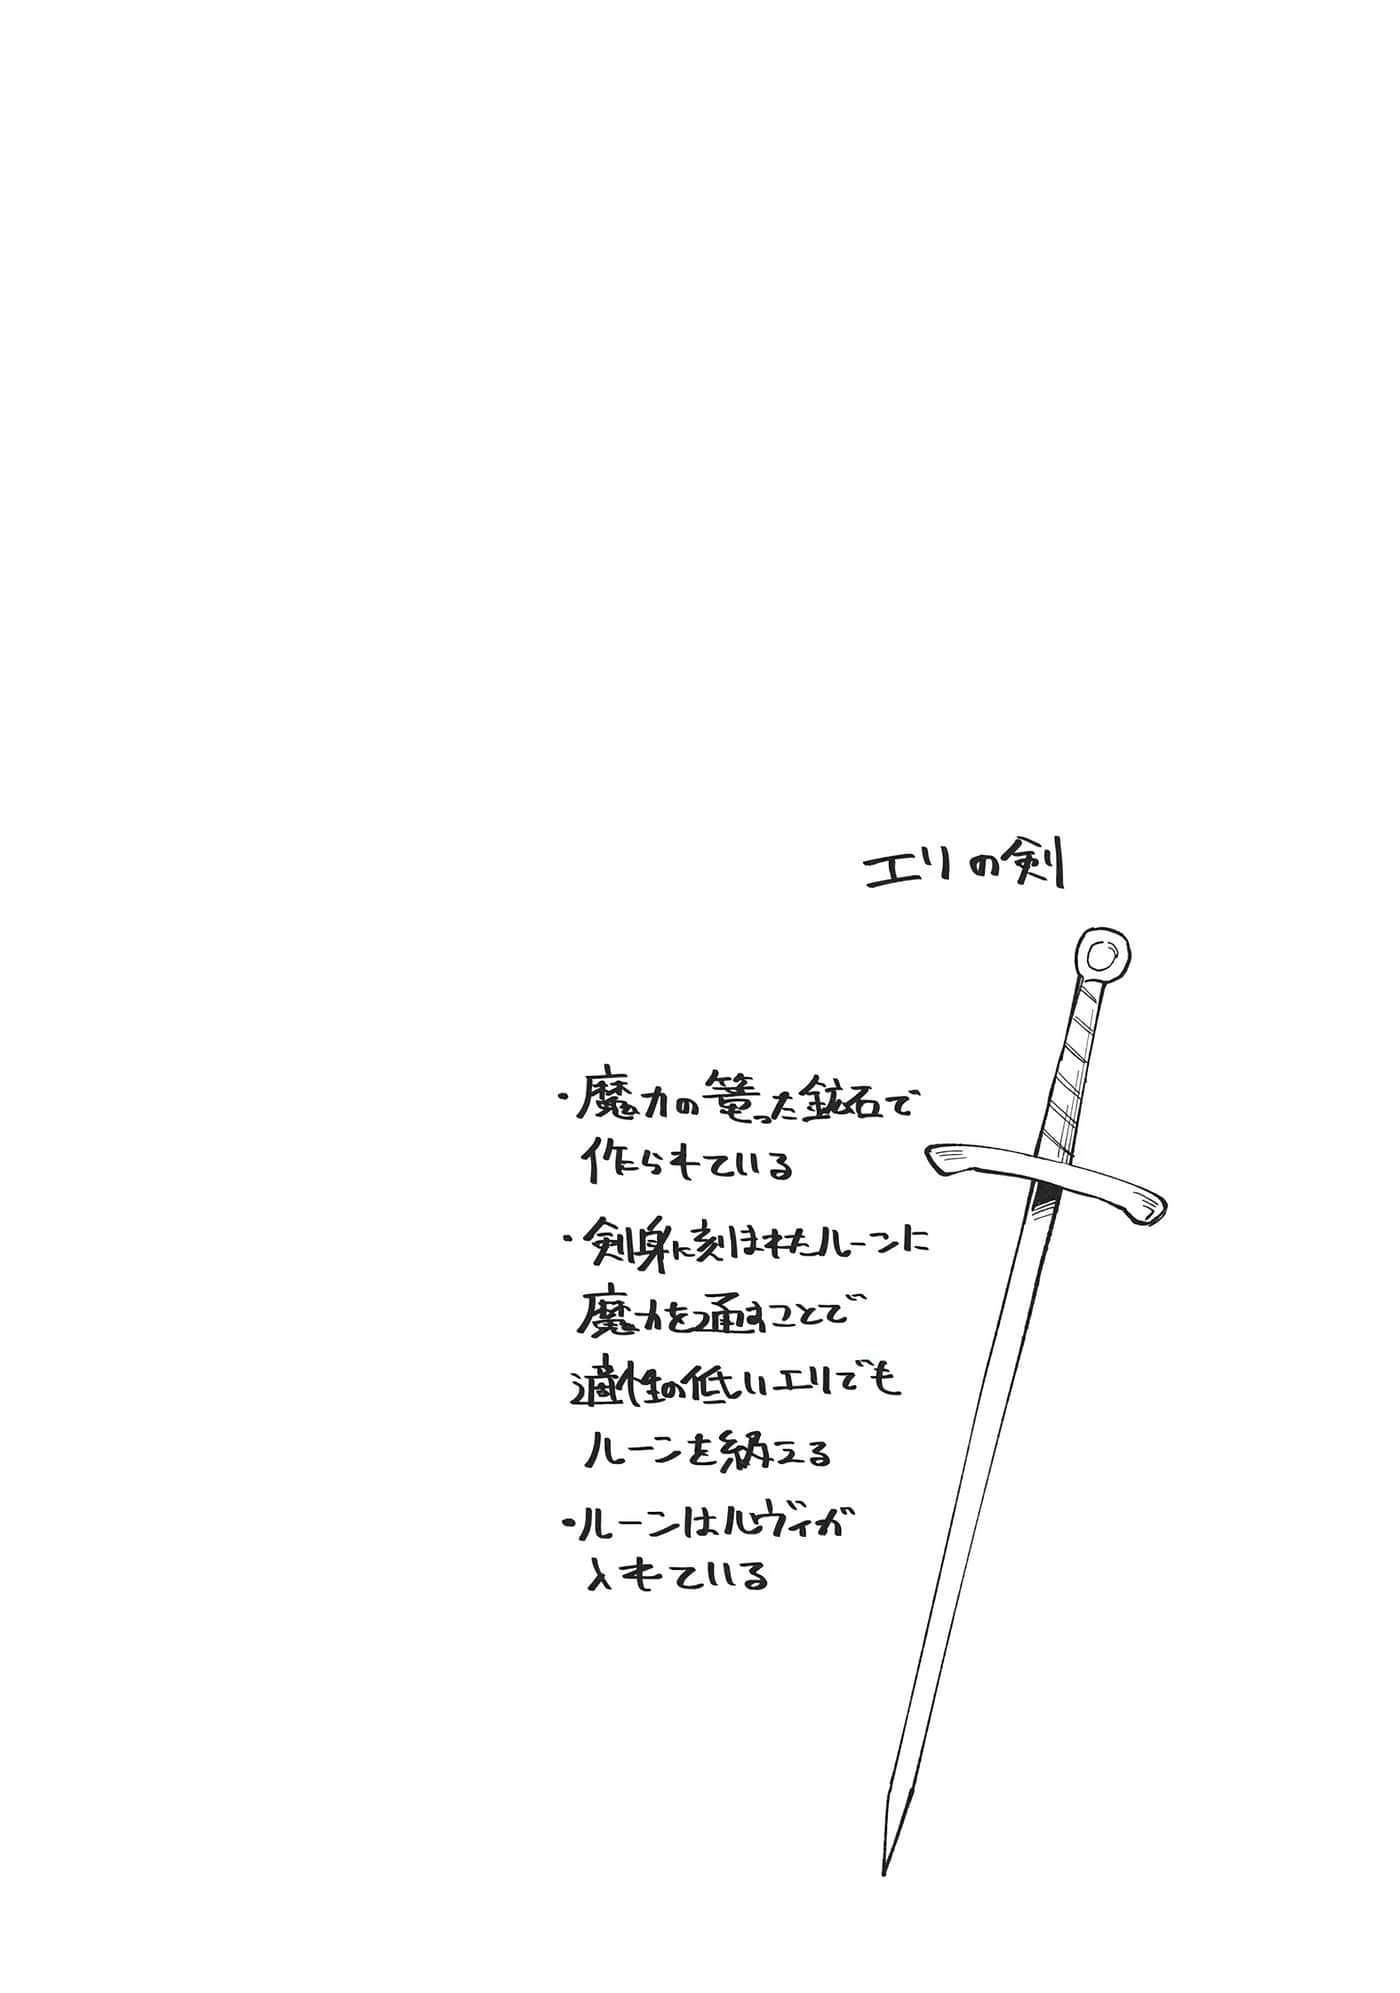 エリの剣
・魔力の篭った鉱石で
作られている
・剣身に刻まれたルーンに
魔力を通すことで
適性の低いエリでも
ルーンを納える
・ルーンはルヴィが
入れている